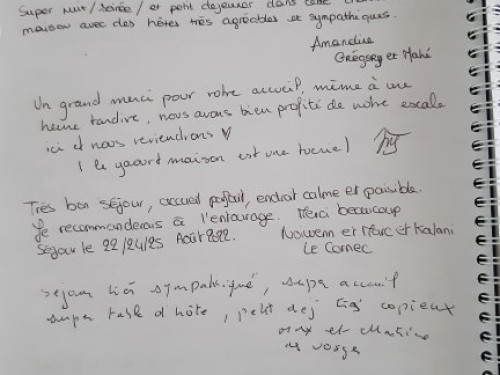 Super nuit/soirée/et petit dejeuner dans cette
maison avec des hôtes très agréables et sympathiques.
Amandine
Grégory et Mahé
Un grand merci pour votre accueil, même à une
heure tardive, nous avons bien profité de notre escale
ici et nous reviendrons ♥
( le yaourt maison est une tuerie )
Très bon séjour, accueil parfait, endroit calme et paisible.
Je recommanderais à l'entourage. Merci beaucoup
Séjour le 22/24/25 Août 2022. Noiwenn et Marc et Kalani
Le Cornec
séjour très sympathique, super accueil
super table d'hôte, petit dej très copieux
et Martine
des vosges